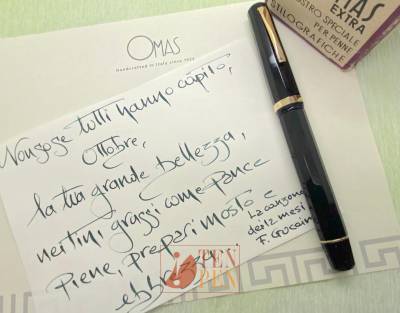 OMAS
Handcrafted in Italy since 1925
Non so se tutti hanno capito,
Ottobre,
la tua grande bellezza,
nei tini grassi come pance
piene, prepari mosto e
ebbrezza
La canzone
dei 12 mesi
F. Guccini
MAS
EXTRA
OSTRO SPECIALE
PER PENNE
STILOGRAFICHE
TEN
PEN